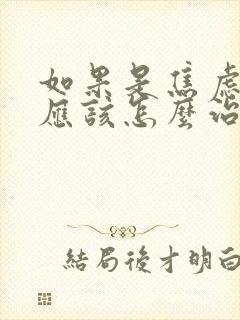 如果是焦慮
應該怎麼治
結局後才明白